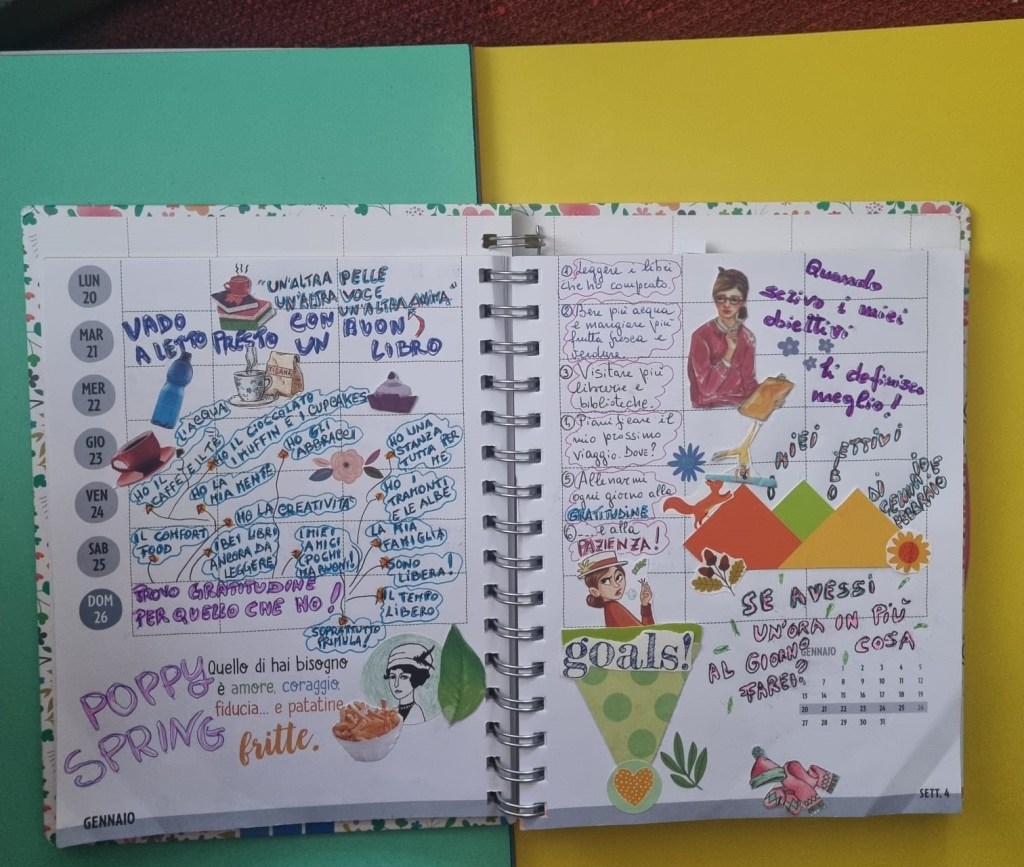 LUN
20
MAR
21
MER
22
GIO
23
VEN
24
SAB
25
DOM
26
"UN'ALTRA PELLE
UN'ALTRA VOCE
UN'ALTRA ANIMA"
VADO CON BUON
A LETTO PRESTO UN LIBRO
TISANA
L'ACQUA
HO IL CAFFÈ E IL TÈ
HO IL CIOCCOLATO
I MUFFIN E I CUPCAKES
HO LA MIA MENTE
HO GLI ABBRACCI
HO UNA
STANZA
TUTTA PER
ME
HO LA CREATIVITÀ
HO I
TRAMONTI
E LE ALBE
IL COMFORT
FOOD
I BEI LIBRI
ANCORA DA
LEGGERE
I MIEI
AMICI
(POCHI
MA BUONI)
LA MIA
FAMIGLIA
SONO
LIBERA!
IL TEMPO
LIBERO
SOPRATTUTTO
PRIMULA!
TROVO GRATITUDINE
PER QUELLO CHE HO!
POPPY
SPRING
Quello di hai bisogno
è amore, coraggio,
fiducia... e patatine
fritte.
GENNAIO
① Leggere i libri
che ho comprato.
② Bere più acqua
e mangiare più
frutta fresca e
verdura.
③ Visitare più
librerie e
biblioteche.
④ Pianificare il
mio prossimo
viaggio. DOVE?
⑤ Allenarmi
ogni giorno alla
GRATITUDINE
⑥ ... e alla
PAZIENZA!
Quando
scrivo i miei
obiettivi
li definisco
meglio!
I MIEI OBIETTIVI
DI GENNAIO
FEBBRAIO
goals!
SE AVESSI
UN'ORA IN PIÙ
AL GIORNO COSA
FAREI?
GENNAIO
1 2 3 4 5
7 8 9 10 11 12
13 15 16 17 18 19
20 21 22 23 24 25 26
27 28 29 30 31
SETT. 4